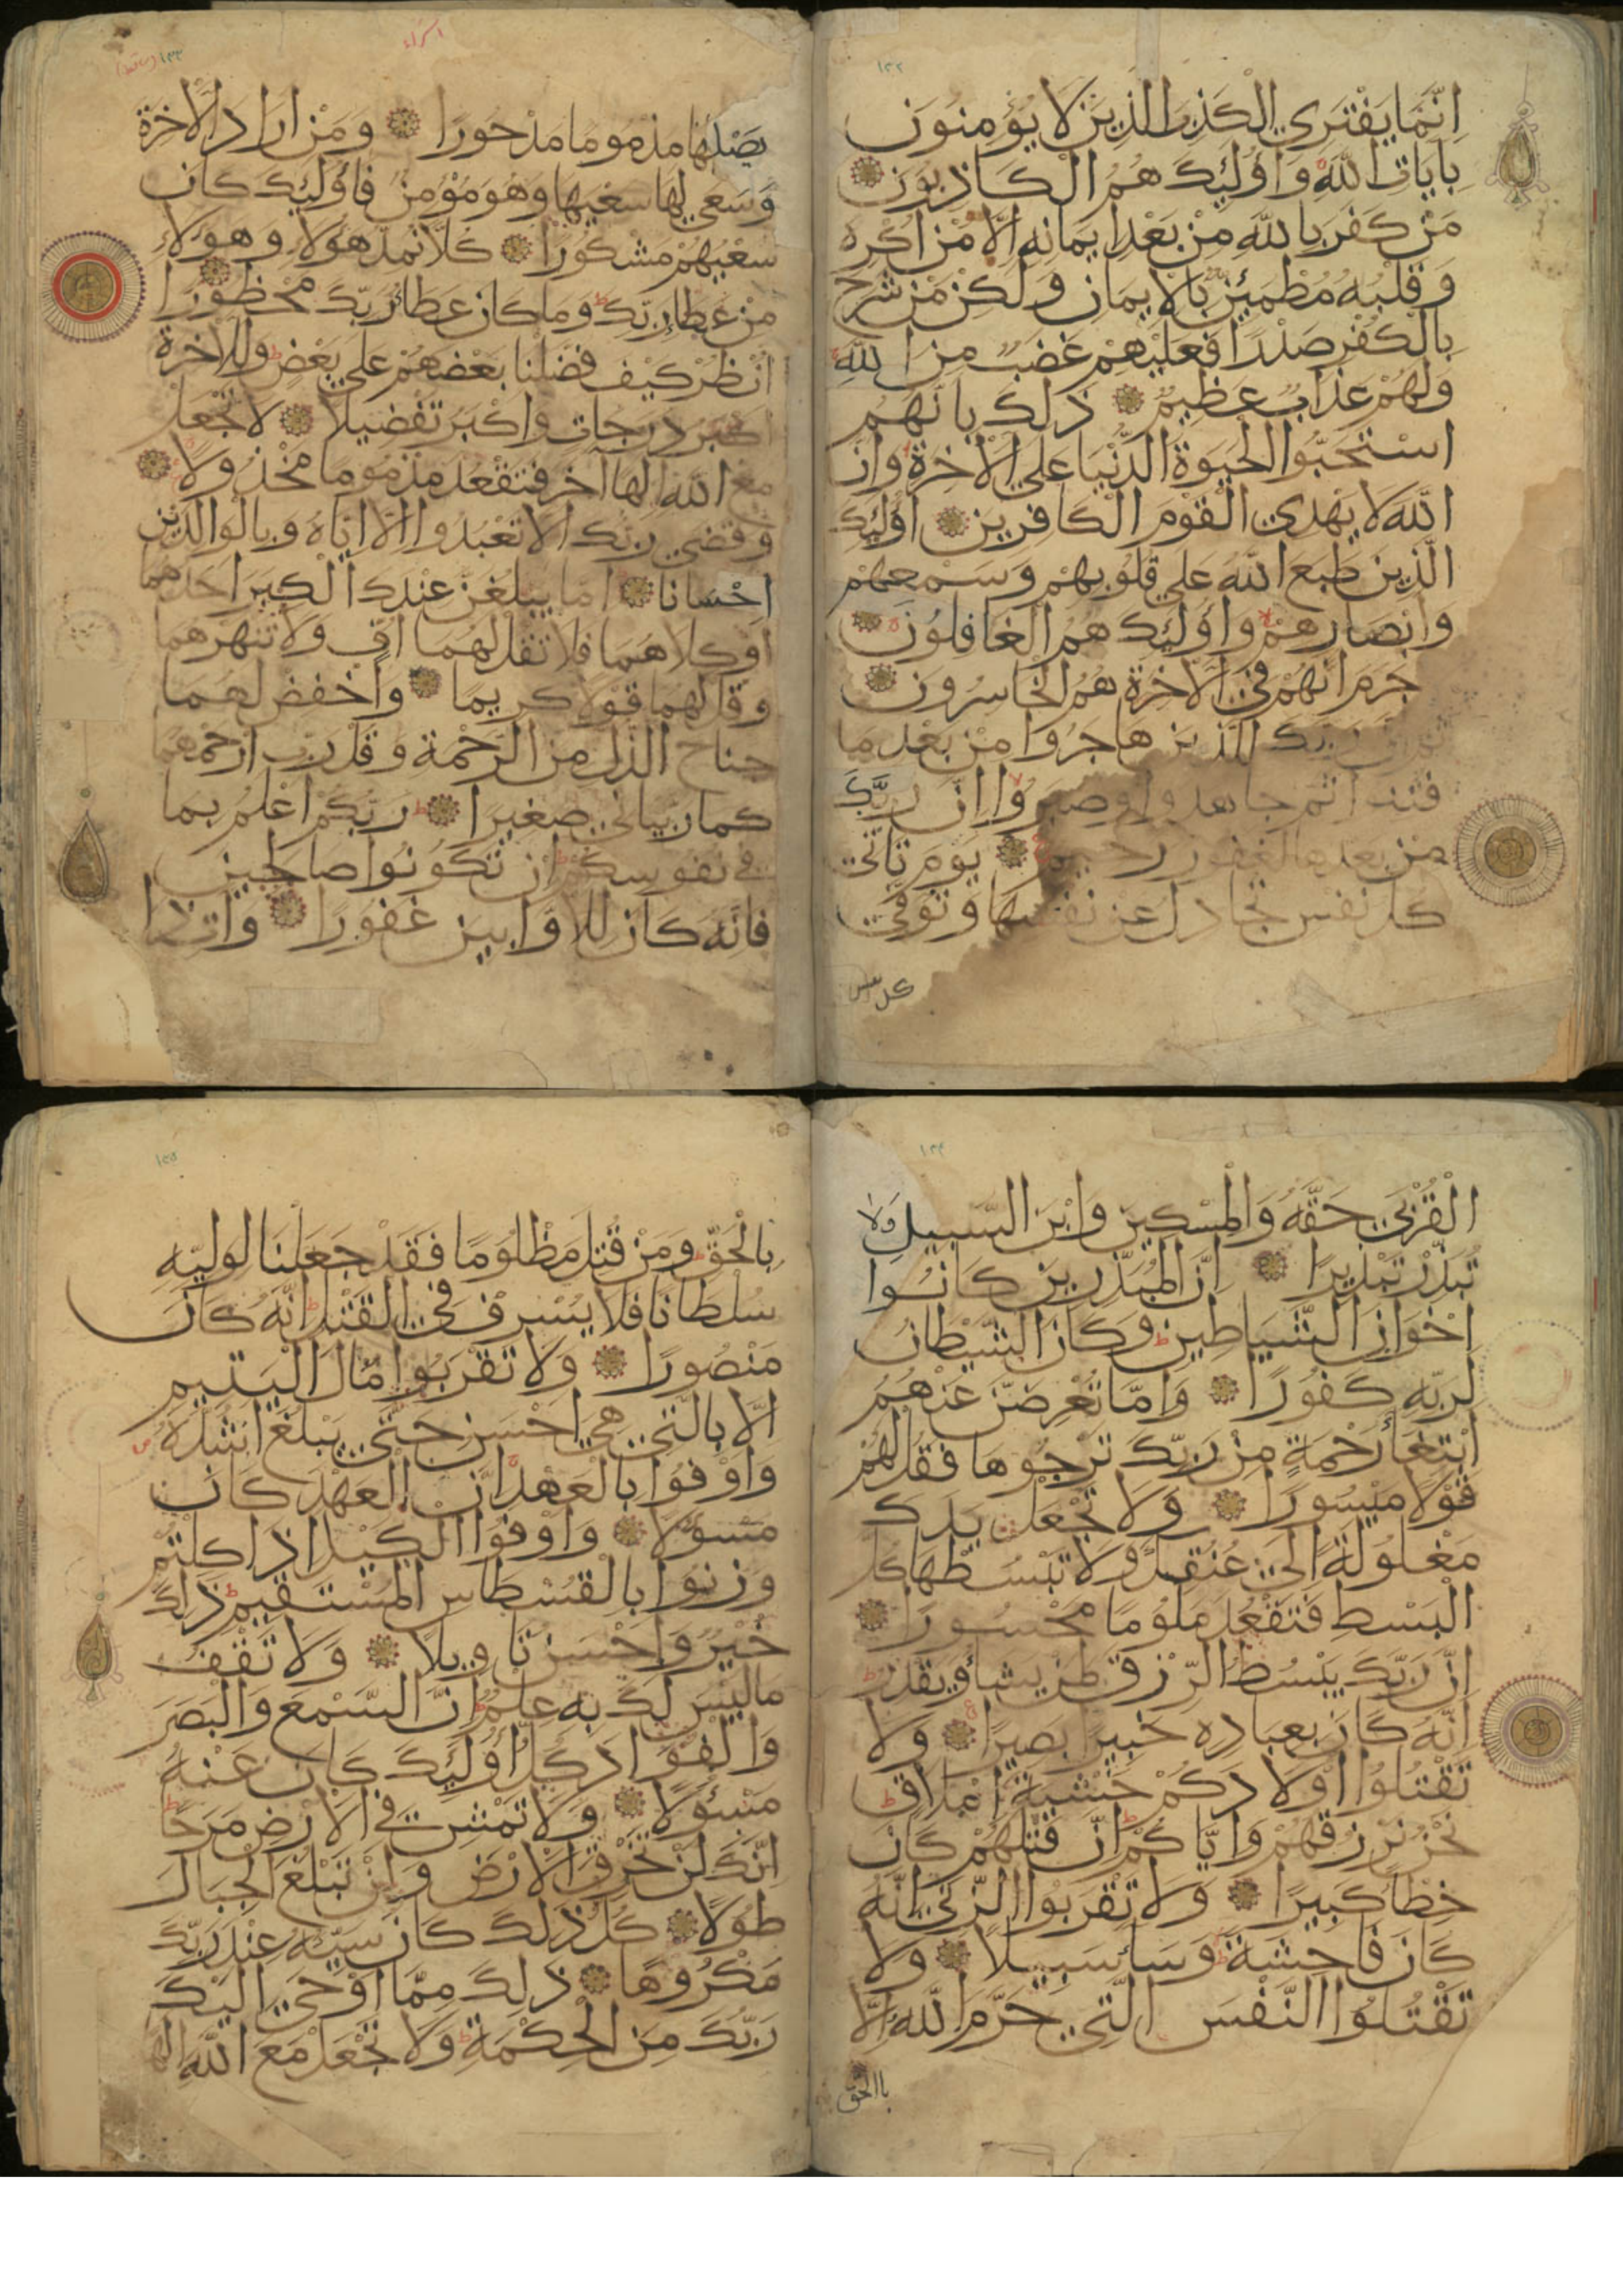 ١٢٢
انما يفتري الكذب الذين لا يؤمنون
بايات الله واولئك هم الكاذبون
من كفر بالله من بعد ايمانه الا من اكره
وقلبه مطمئن بالايمان ولكن من شرح
بالكفر صدرا فعليهم غضب من الله
ولهم عذاب عظيم ذلك بانهم
استحبوا الحيوة الدنيا على الاخرة وان
الله لا يهدي القوم الكافرين اولئك
الذين طبع الله على قلوبهم وسمعهم
وابصارهم واولئك هم الغافلون
جرم انهم في الاخرة هم الخاسرون
ربك للذين هاجروا من بعد ما
فتنوا ثم جاهدوا وصبروا ان ربك
من بعدها لغفور رحيم يوم تاتي
كل نفس تجادل عن نفسها وتوفى
كل نفس
اسراء
١٢٣
يصليها مذموما مدحورا ومن اراد الاخرة
وسعى لها سعيها وهو مؤمن فاولئك كان
سعيهم مشكورا كلا نمد هؤلاء وهؤلاء
من عطاء ربك وما كان عطاء ربك محظورا
انظر كيف فضلنا بعضهم على بعض وللاخرة
اكبر درجات واكبر تفضيلا لا تجعل
مع الله الها آخر فتقعد مذموما مخذولا
وقضى ربك الا تعبدوا الا اياه وبالوالدين
احسانا اما يبلغن عندك الكبر احدهما
او كلاهما فلا تقل لهما اف ولا تنهرهما
وقل لهما قولا كريما واخفض لهما
جناح الذل من الرحمة وقل رب ارحمهما
كما ربياني صغيرا ربكم اعلم بما
في نفوسكم ان تكونوا صالحين
فانه كان للاوابين غفورا وات ذا
١٢٤
القربى حقه والمسكين وابن السبيل ولا
تبذر تبذيرا ان المبذرين كانوا
اخوان الشياطين وكان الشيطان
لربه كفورا واما تعرضن عنهم
ابتغاء رحمة من ربك ترجوها فقل لهم
قولا ميسورا ولا تجعل يدك
مغلولة الى عنقك ولا تبسطها كل
البسط فتقعد ملوما محسورا
ان ربك يبسط الرزق لمن يشاء ويقدر
انه كان بعباده خبيرا بصيرا ولا
تقتلوا اولادكم خشية املاق
نحن نرزقهم واياكم ان قتلهم كان
خطأ كبيرا ولا تقربوا الزنى انه
كان فاحشة وساء سبيلا ولا
تقتلوا النفس التي حرم الله الا
بالحق
١٢٥
بالحق ومن قتل مظلوما فقد جعلنا لوليه
سلطانا فلا يسرف في القتل انه كان
منصورا ولا تقربوا مال اليتيم
الا بالتي هي احسن حتى يبلغ اشده
واوفوا بالعهد ان العهد كان
مسؤلا واوفوا الكيل اذا كلتم
وزنوا بالقسطاس المستقيم ذلك
خير واحسن تاويلا ولا تقف
ما ليس لك به علم ان السمع والبصر
والفؤاد كل اولئك كان عنه
مسؤلا ولا تمش في الارض مرحا
انك لن تخرق الارض ولن تبلغ الجبال
طولا كل ذلك كان سيئه عند ربك
مكروها ذلك مما اوحى اليك
ربك من الحكمة ولا تجعل مع الله الها